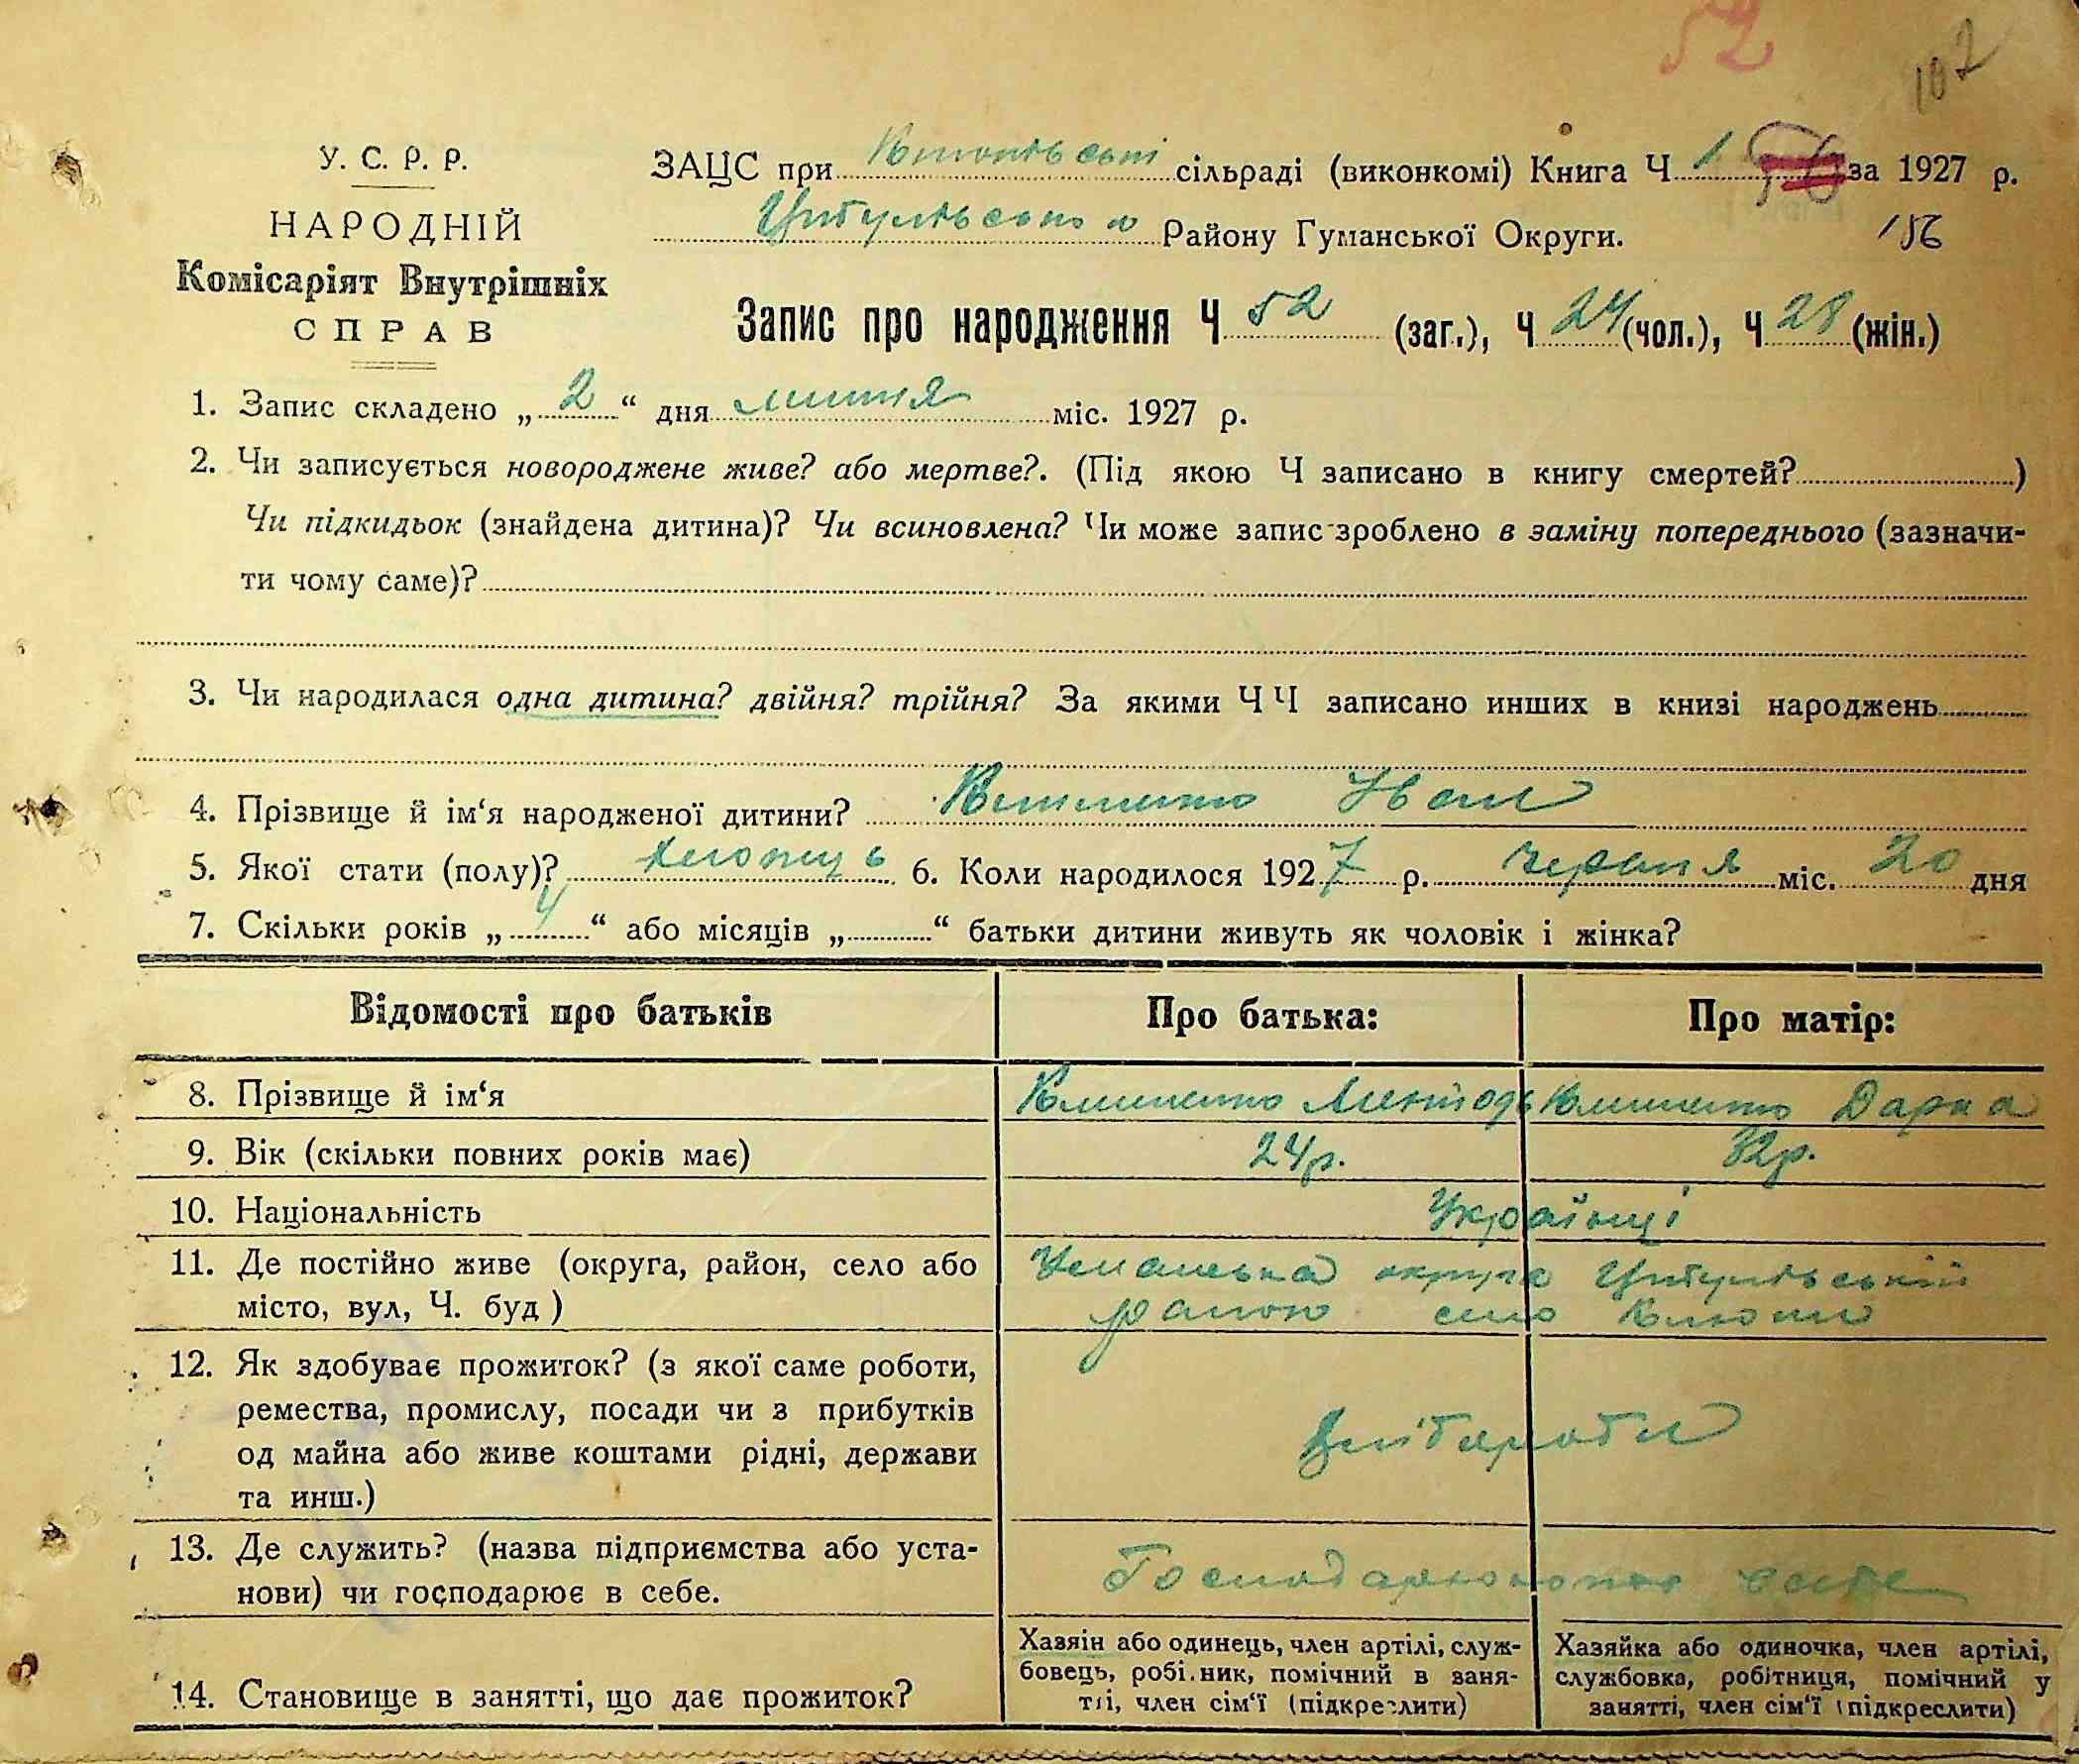 52
102
У. С. Р. Р.
НАРОДНІЙ
Комісаріят Внутрішніх
СПРАВ
ЗАЦС при сільраді (виконкомі) Книга Ч 1 за 1927 р.
Цибулівського Району Гуманської Округи.
156
Запис про народження Ч 52 (заг.), Ч 24 (чол.), Ч 28 (жін.)
1. Запис складено „ 2 “ дня липня міс. 1927 р.
2. Чи записується новороджене живе? або мертве?. (Під якою Ч записано в книгу смертей? )
Чи підкидьок (знайдена дитина)? Чи всиновлена? Чи може запис зроблено в заміну попереднього (зазначи-
ти чому саме)?
3. Чи народилася одна дитина? двійня? трійня? За якими Ч Ч записано инших в книзі народжень
4. Прізвище й ім‘я народженої дитини? Клименко Іван
5. Якої стати (полу)? хлопець 6. Коли народилося 1927 р. червня міс. 20 дня
7. Скільки років „ 4 “ або місяців „ “ батьки дитини живуть як чоловік і жінка?
Відомості про батьків Про батька: Про матір:
8. Прізвище й ім‘я Клименко Клименко Дарка
9. Вік (скільки повних років має) 24р. 32р.
10. Національність Українці
11. Де постійно живе (округа, район, село або Уманська округа Цибулівській
місто, вул, Ч. буд ) район село Клюки
12. Як здобуває прожиток? (з якої саме роботи,
ремества, промислу, посади чи з прибутків
од майна або живе коштами рідні, держави Хлібороби
та инш.)
13. Де служить? (назва підприємства або уста-
нови) чи господарює в себе.
14. Становище в занятті, що дає прожиток?
Хазяін або одинець, член артілі, служ-
бовець, робі.ник, помічний в заня-
тіі, член сім‘ї (підкреслити)
Хазяйка або одиночка, член артілі,
службовка, робітниця, помічний у
занятті, член сім‘ї (підкреслити)